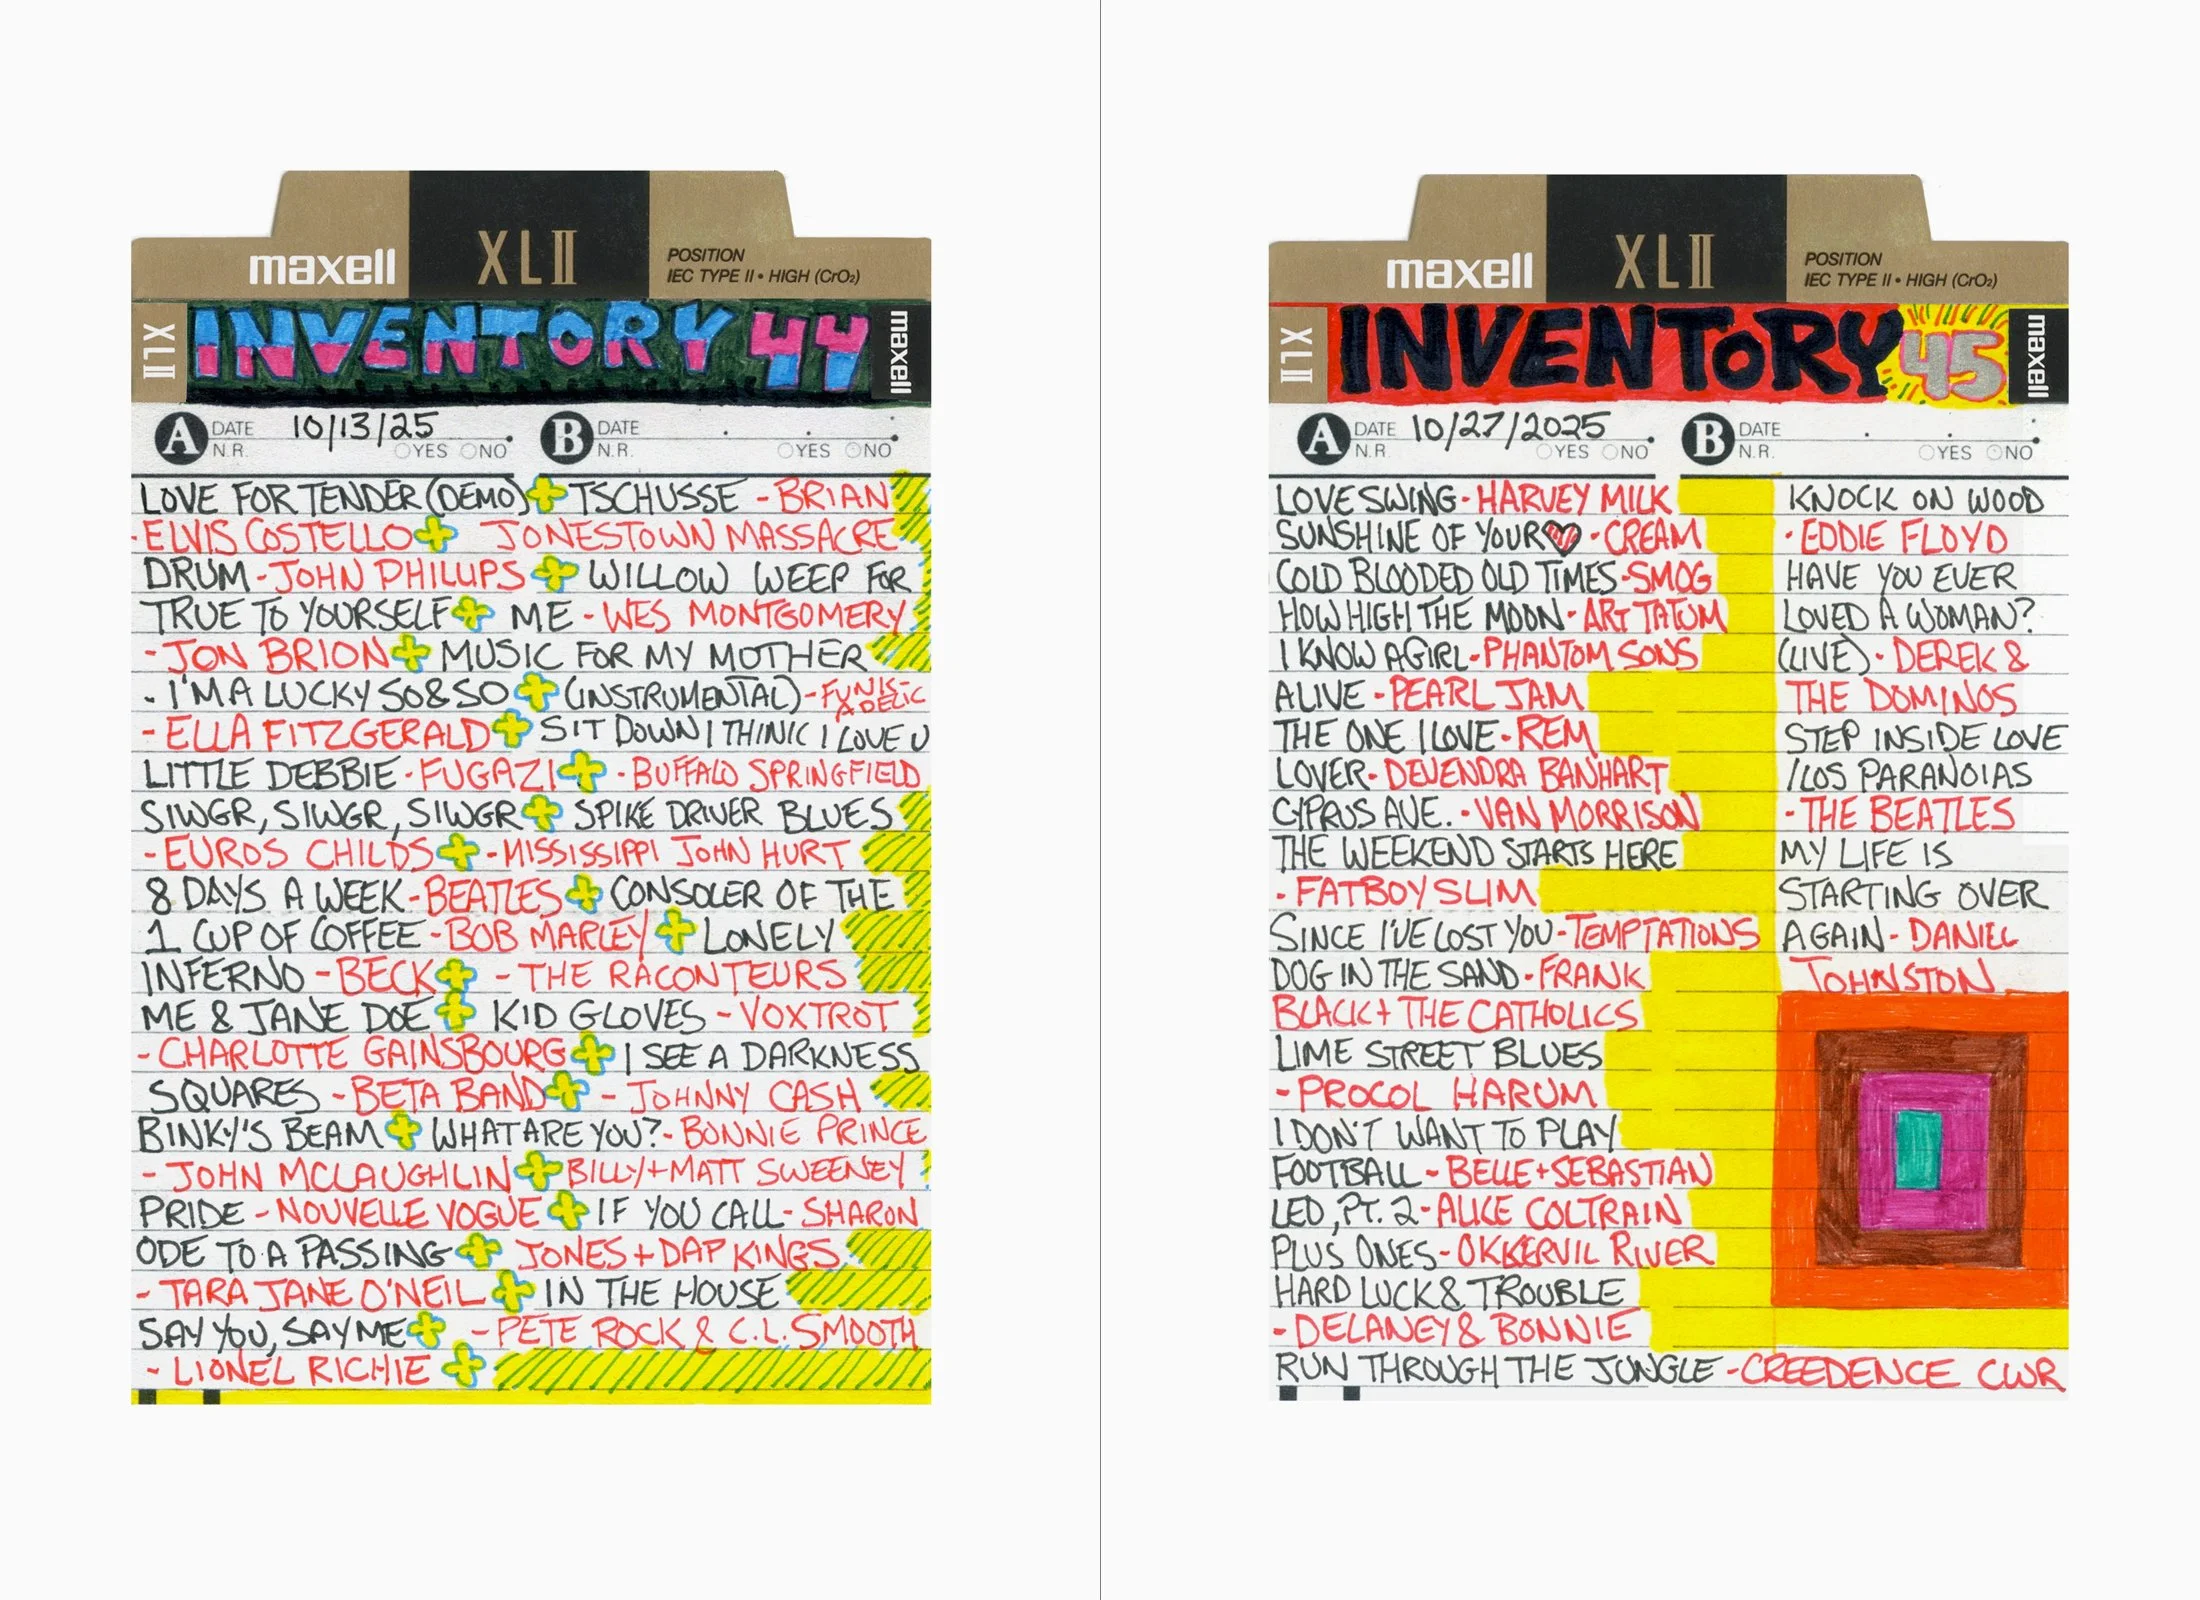 maxell
XLII
POSITION
IEC TYPE II • HIGH (CrO₂)
XLII
INVENTORY 44
maxell
A DATE 10/13/25
N.R. YES NO
B DATE
N.R. YES NO
LOVE FOR TENDER (DEMO)
-ELVIS COSTELLO
DRUM-JOHN PHILLIPS
TRUE TO YOURSELF
-JON BRION
. I'M A LUCKY SO&SO
- ELLA FITZGERALD
LITTLE DEBBIE-FUGAZI
SIWGR, SIWGR, SIWGR
- EUROS CHILDS
8 DAYS A WEEK-BEATLES
1 CUP OF COFFEE-BOB MARLEY
INFERNO -BECK
ME & JANE DOE
-CHARLOTTE GAINSBOURG
SQUARES -BETA BAND
BINKY'S BEAM
- JOHN MCLAUGHLIN
PRIDE -NOUVELLE VOGUE
ODE TO A PASSING
- TARA JANE O'NEIL
SAY YOU, SAY ME
- LIONEL RICHIE
TSCHUSSE - BRIAN
JONESTOWN MASSACRE
WILLOW WEEP FOR
ME - WES MONTGOMERY
MUSIC FOR MY MOTHER
(INSTRUMENTAL) - FUNK-
ADELIC
SIT DOWN I THINK I LOVE U
- BUFFALO SPRINGFIELD
SPIKE DRIVER BLUES
-MISSISSIPPI JOHN HURT
CONSOLER OF THE
LONELY
- THE RACONTEURS
KID GLOVES - VOXTROT
I SEE A DARKNESS
- JOHNNY CASH
WHAT ARE YOU?- BONNIE PRINCE
BILLY+MATT SWEENEY
IF YOU CALL- SHARON
JONES + DAP KINGS
IN THE HOUSE
-PETE ROCK & C.L. SMOOTH
maxell
XLII
POSITION
IEC TYPE II • HIGH (CrO₂)
XLII
INVENTORY 45
maxell
A DATE 10/27/2025
N.R. YES NO
B DATE
N.R. YES NO
LOVE SWING-HARVEY MILK
SUNSHINE OF YOUR ♥ -CREAM
COLD BLOODED OLD TIMES-SMOG
HOW HIGH THE MOON-ART TATUM
I KNOW A GIRL-PHANTOM SONS
ALIVE -PEARL JAM
THE ONE I LOVE-REM
LOVER-DEVENDRA BANHART
CYPRUS AVE. -VAN MORRISON
THE WEEKEND STARTS HERE
- FATBOY SLIM
SINCE I'VE LOST YOU-TEMPTATIONS
DOG IN THE SAND-FRANK
BLACK+ THE CATHOLICS
LIME STREET BLUES
-PROCOL HARUM
I DON'T WANT TO PLAY
FOOTBALL -BELLE+SEBASTIAN
LED, PT. 2-ALICE COLTRAIN
PLUS ONES-OKKERVIL RIVER
HARD LUCK & TROUBLE
-DELANEY & BONNIE
RUN THROUGH THE JUNGLE -CREEDENCE CWR
KNOCK ON WOOD
- EDDIE FLOYD
HAVE YOU EVER
LOVED A WOMAN?
(LIVE)- DEREK &
THE DOMINOS
STEP INSIDE LOVE
/LOS PARANOIAS
-THE BEATLES
MY LIFE IS
STARTING OVER
AGAIN- DANIEL
JOHNSTON